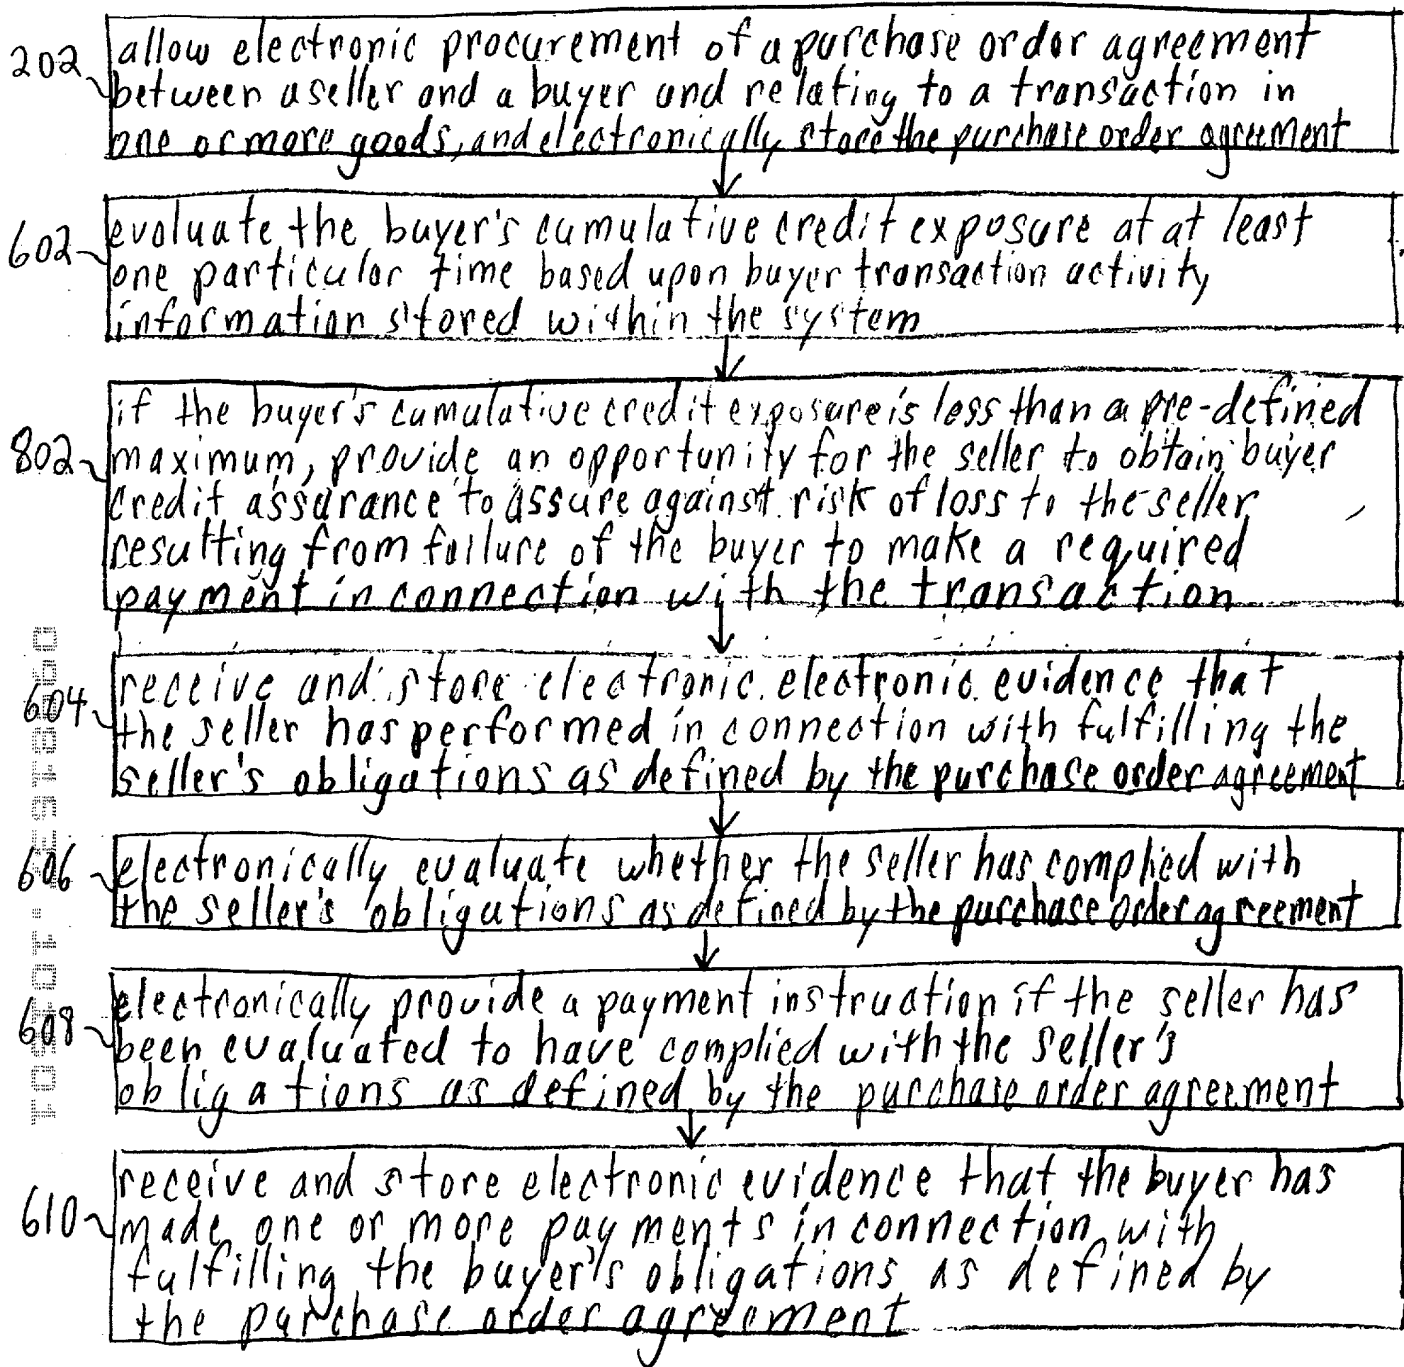 202 allow electronic procurement of a purchase order agreement
between a seller and a buyer and relating to a transaction in
one or more goods, and electronically store the purchase order agreement
602 evaluate the buyer's cumulative credit exposure at at least
one particular time based upon buyer transaction activity
information stored within the system
if the buyer's cumulative credit exposure is less than a pre-defined
802 maximum, provide an opportunity for the seller to obtain buyer
credit assurance to assure against risk of loss to the seller
resulting from failure of the buyer to make a required
payment in connection with the transaction
receive and store electronic electronic evidence that
604 the seller has performed in connection with fulfilling the
seller's obligations as defined by the purchase order agreement
606 electronically evaluate whether the seller has complied with
the seller's obligations as defined by the purchase order agreement
electronically provide a payment instruction if the seller has
608 been evaluated to have complied with the seller's
obligations as defined by the purchase order agreement
receive and store electronic evidence that the buyer has
610 made one or more payments in connection with
fulfilling the buyer's obligations as defined by
the purchase order agreement